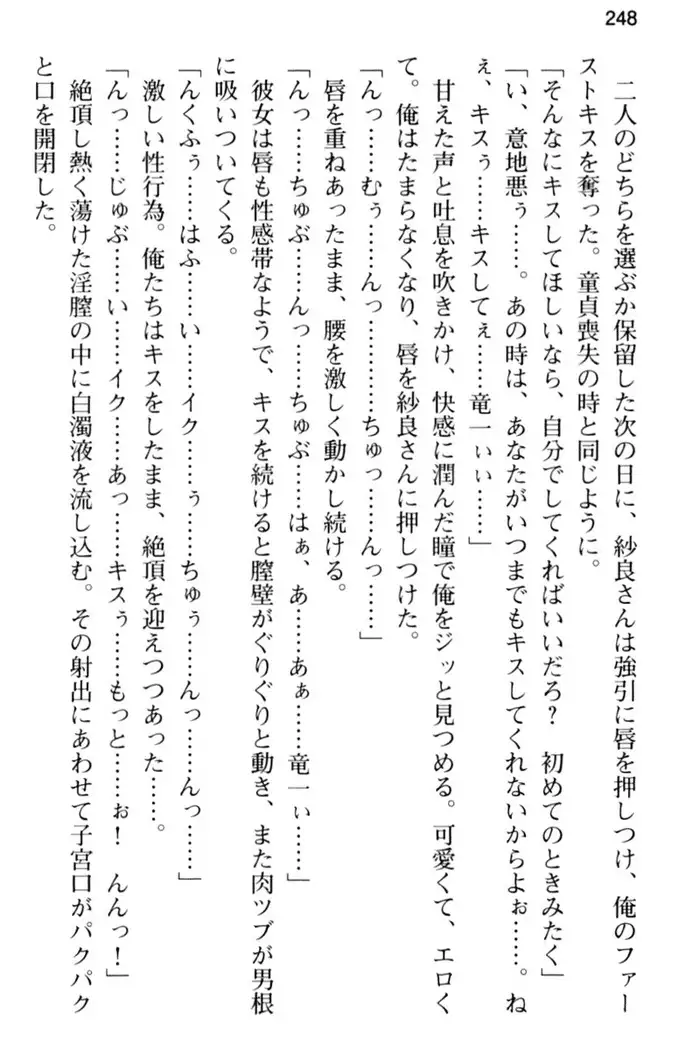 248
二人のどちらを選ぶか保留した次の日に、紗良さんは強引に唇を押しつけ、俺のファー
ストキスを奪った。童貞喪失の時と同じように。
「そんなにキスしてほしいなら、自分でしてくればいいだろ？　初めてのときみたく」
「い、意地悪ぅ……。あの時は、あなたがいつまでもキスしてくれないからよぉ……。ね
ぇ、キスぅ……キスしてぇ……竜一ぃぃ……」
甘えた声と吐息を吹きかけ、快感に潤んだ瞳で俺をジッと見つめる。可愛くて、エロく
て。俺はたまらなくなり、唇を紗良さんに押しつけた。
「んっ……むぅ……んっ…………ちゅっ……んっ……」
唇を重ねあったまま、腰を激しく動かし続ける。
「んっ……ちゅぶ……んっ……ちゅぶ……はぁ、あ……あぁ……竜一ぃ……」
彼女は唇も性感帯なようで、キスを続けると膣壁がぐりぐりと動き、また肉ツブが男根
に吸いついてくる。
「んくふぅ……はふ……い……イク……ぅ……ちゅぅ……んっ……んっ……」
激しい性行為。俺たちはキスをしたまま、絶頂を迎えつつあった……。
「んっ……じゅぶ……い……イク……あっ……キスぅ……もっと……ぉ！　んんっ！」
絶頂し熱く蕩けた淫膣の中に白濁液を流し込む。その射出にあわせて子宮口がパクパク
と口を開閉した。